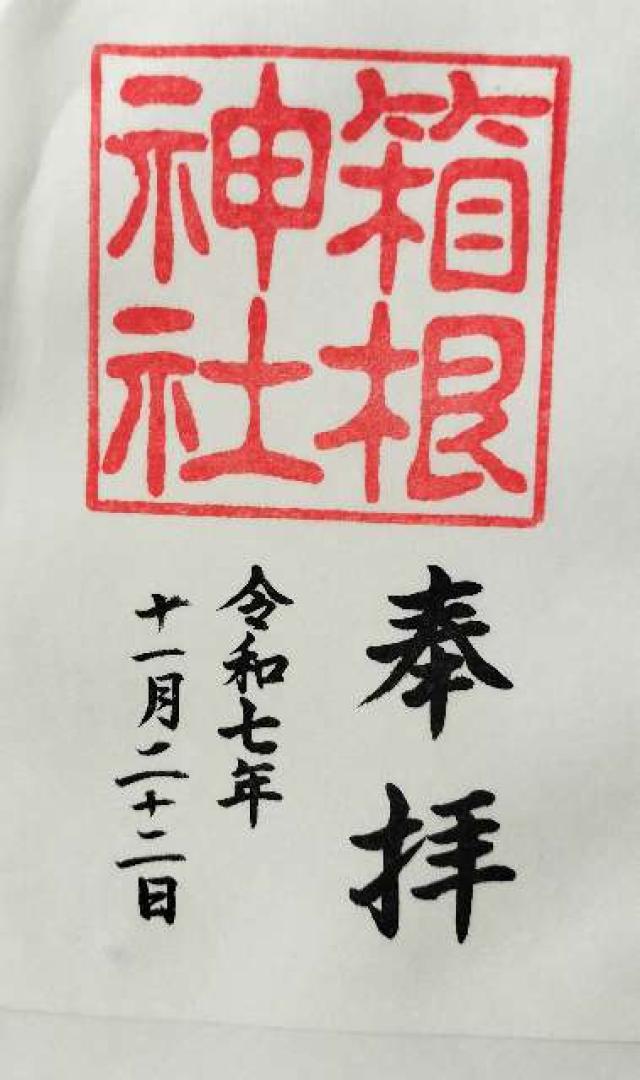 箱根
神社
奉拝
令和七年
十一月二十二日